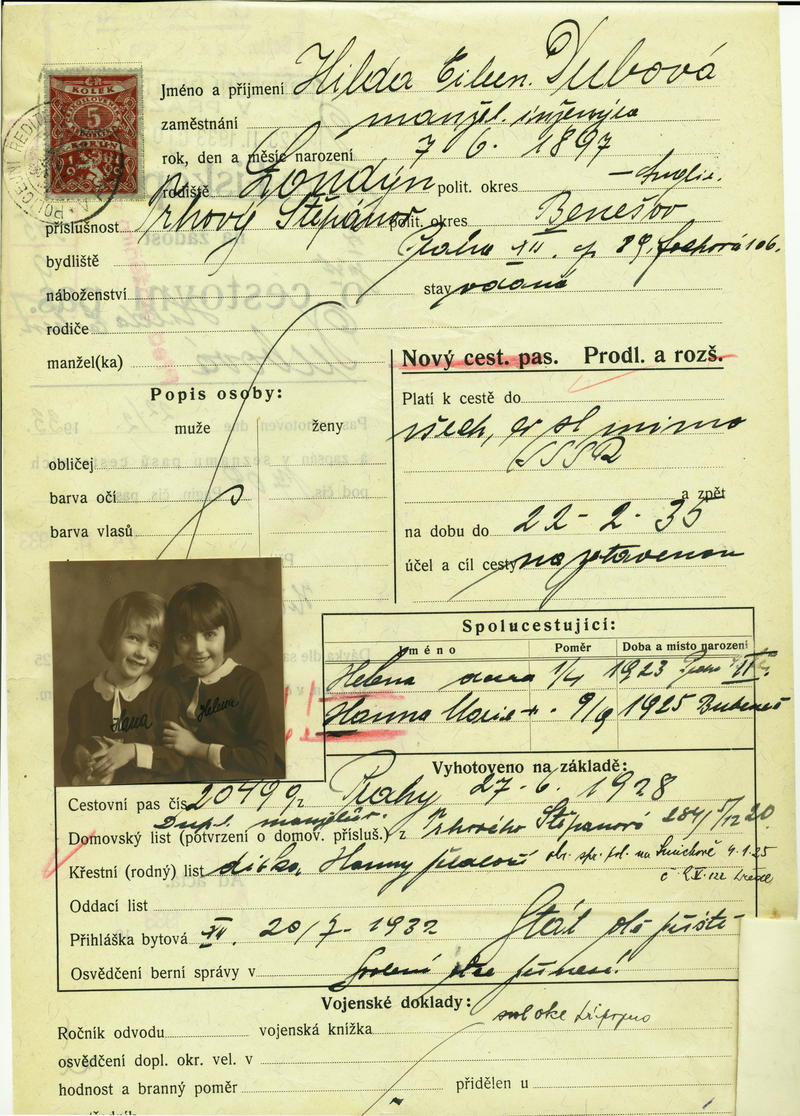 ČR
KOLEK
5
KORUN
Jméno a příjmení Hilda Eileen Dubová
zaměstnání manžel. inženýra
rok, den a měsíc narození 7 6. 1897
rodiště Londýn polit. okres – Anglie.
příslušnost Trhový Štěpánov polit. okres Benešov
bydliště Praha XII. čp 89, Fochova 106.
náboženství stav vdaná
rodiče
manžel(ka)
Popis osoby:
muže ženy
obličej
barva očí
barva vlasů
Nový cest. pas. Prodl. a rozš.
Platí k cestě do
všech, mimo
SSSR
a zpět
na dobu do 22 - 2 - 35
účel a cíl cesty na zotavenou
Hana Helena
Spolucestující:
Jméno Poměr Doba a místo narození
Helena dcera 1/4 1923 Praha II.
Hanna Marie 9/9 1925 Bubeneč
Vyhotoveno na základě:
Cestovní pas čís. 20499 z Prahy 27 - 6. 1928
Domovský list (potvrzení o domov. přísluš.) z Trhového Štěpánova 284/ 5/12 20.
Křestní (rodný) list dítka Hanny na Smíchově 4.1.25
Oddací list
Přihláška bytová XII. 20/7 - 1932
Osvědčení berní správy v
Vojenské doklady:
Ročník odvodu vojenská knížka
osvědčení dopl. okr. vel. v
hodnost a branný poměr přidělen u